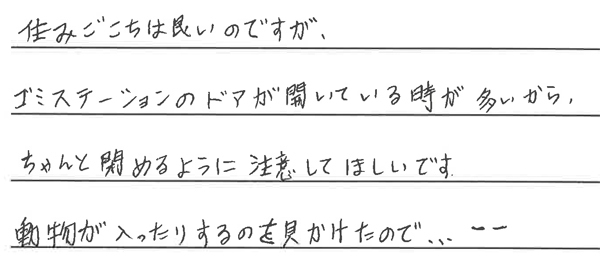 住みごこちは良いのですが、
ゴミステーションのドアが開いている時が多いから、
ちゃんと閉めるように注意してほしいです.
動物が入ったりするのを見かけたので... ーー